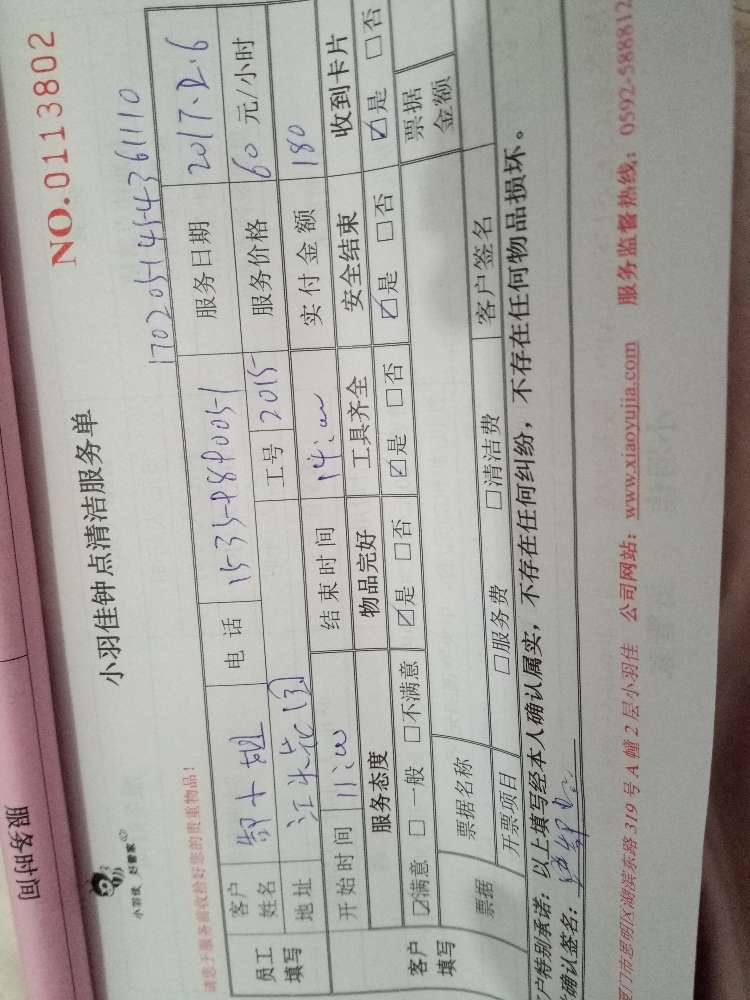 服务时间
NO.0113802
小羽佳钟点清洁服务单
小羽佳 好管家
请您于服务前收拾好您的贵重物品!
员工填写
客户姓名 小姐 电话 服务日期 2017.2.6
地址 江头花园 工号 2015 服务价格 60 元/小时
开始时间 11:00 结束时间 14:00 实付金额 180
客户填写
服务态度 物品完好 工具齐全 安全结束 收到卡片
☑满意 □一般 □不满意 ☑是 □否 ☑是 □否 ☑是 □否 ☑是 □否
票据 票据名称 票据金额
开票项目 □服务费 □清洁费 客户签名
户特别承诺:以上填写经本人确认属实,不存在任何纠纷,不存在任何物品损坏。
确认签名:
门市思明区湖滨东路319号A幢2层小羽佳 公司网站:www.xiaoyujia.com 服务监督热线:0592-588812